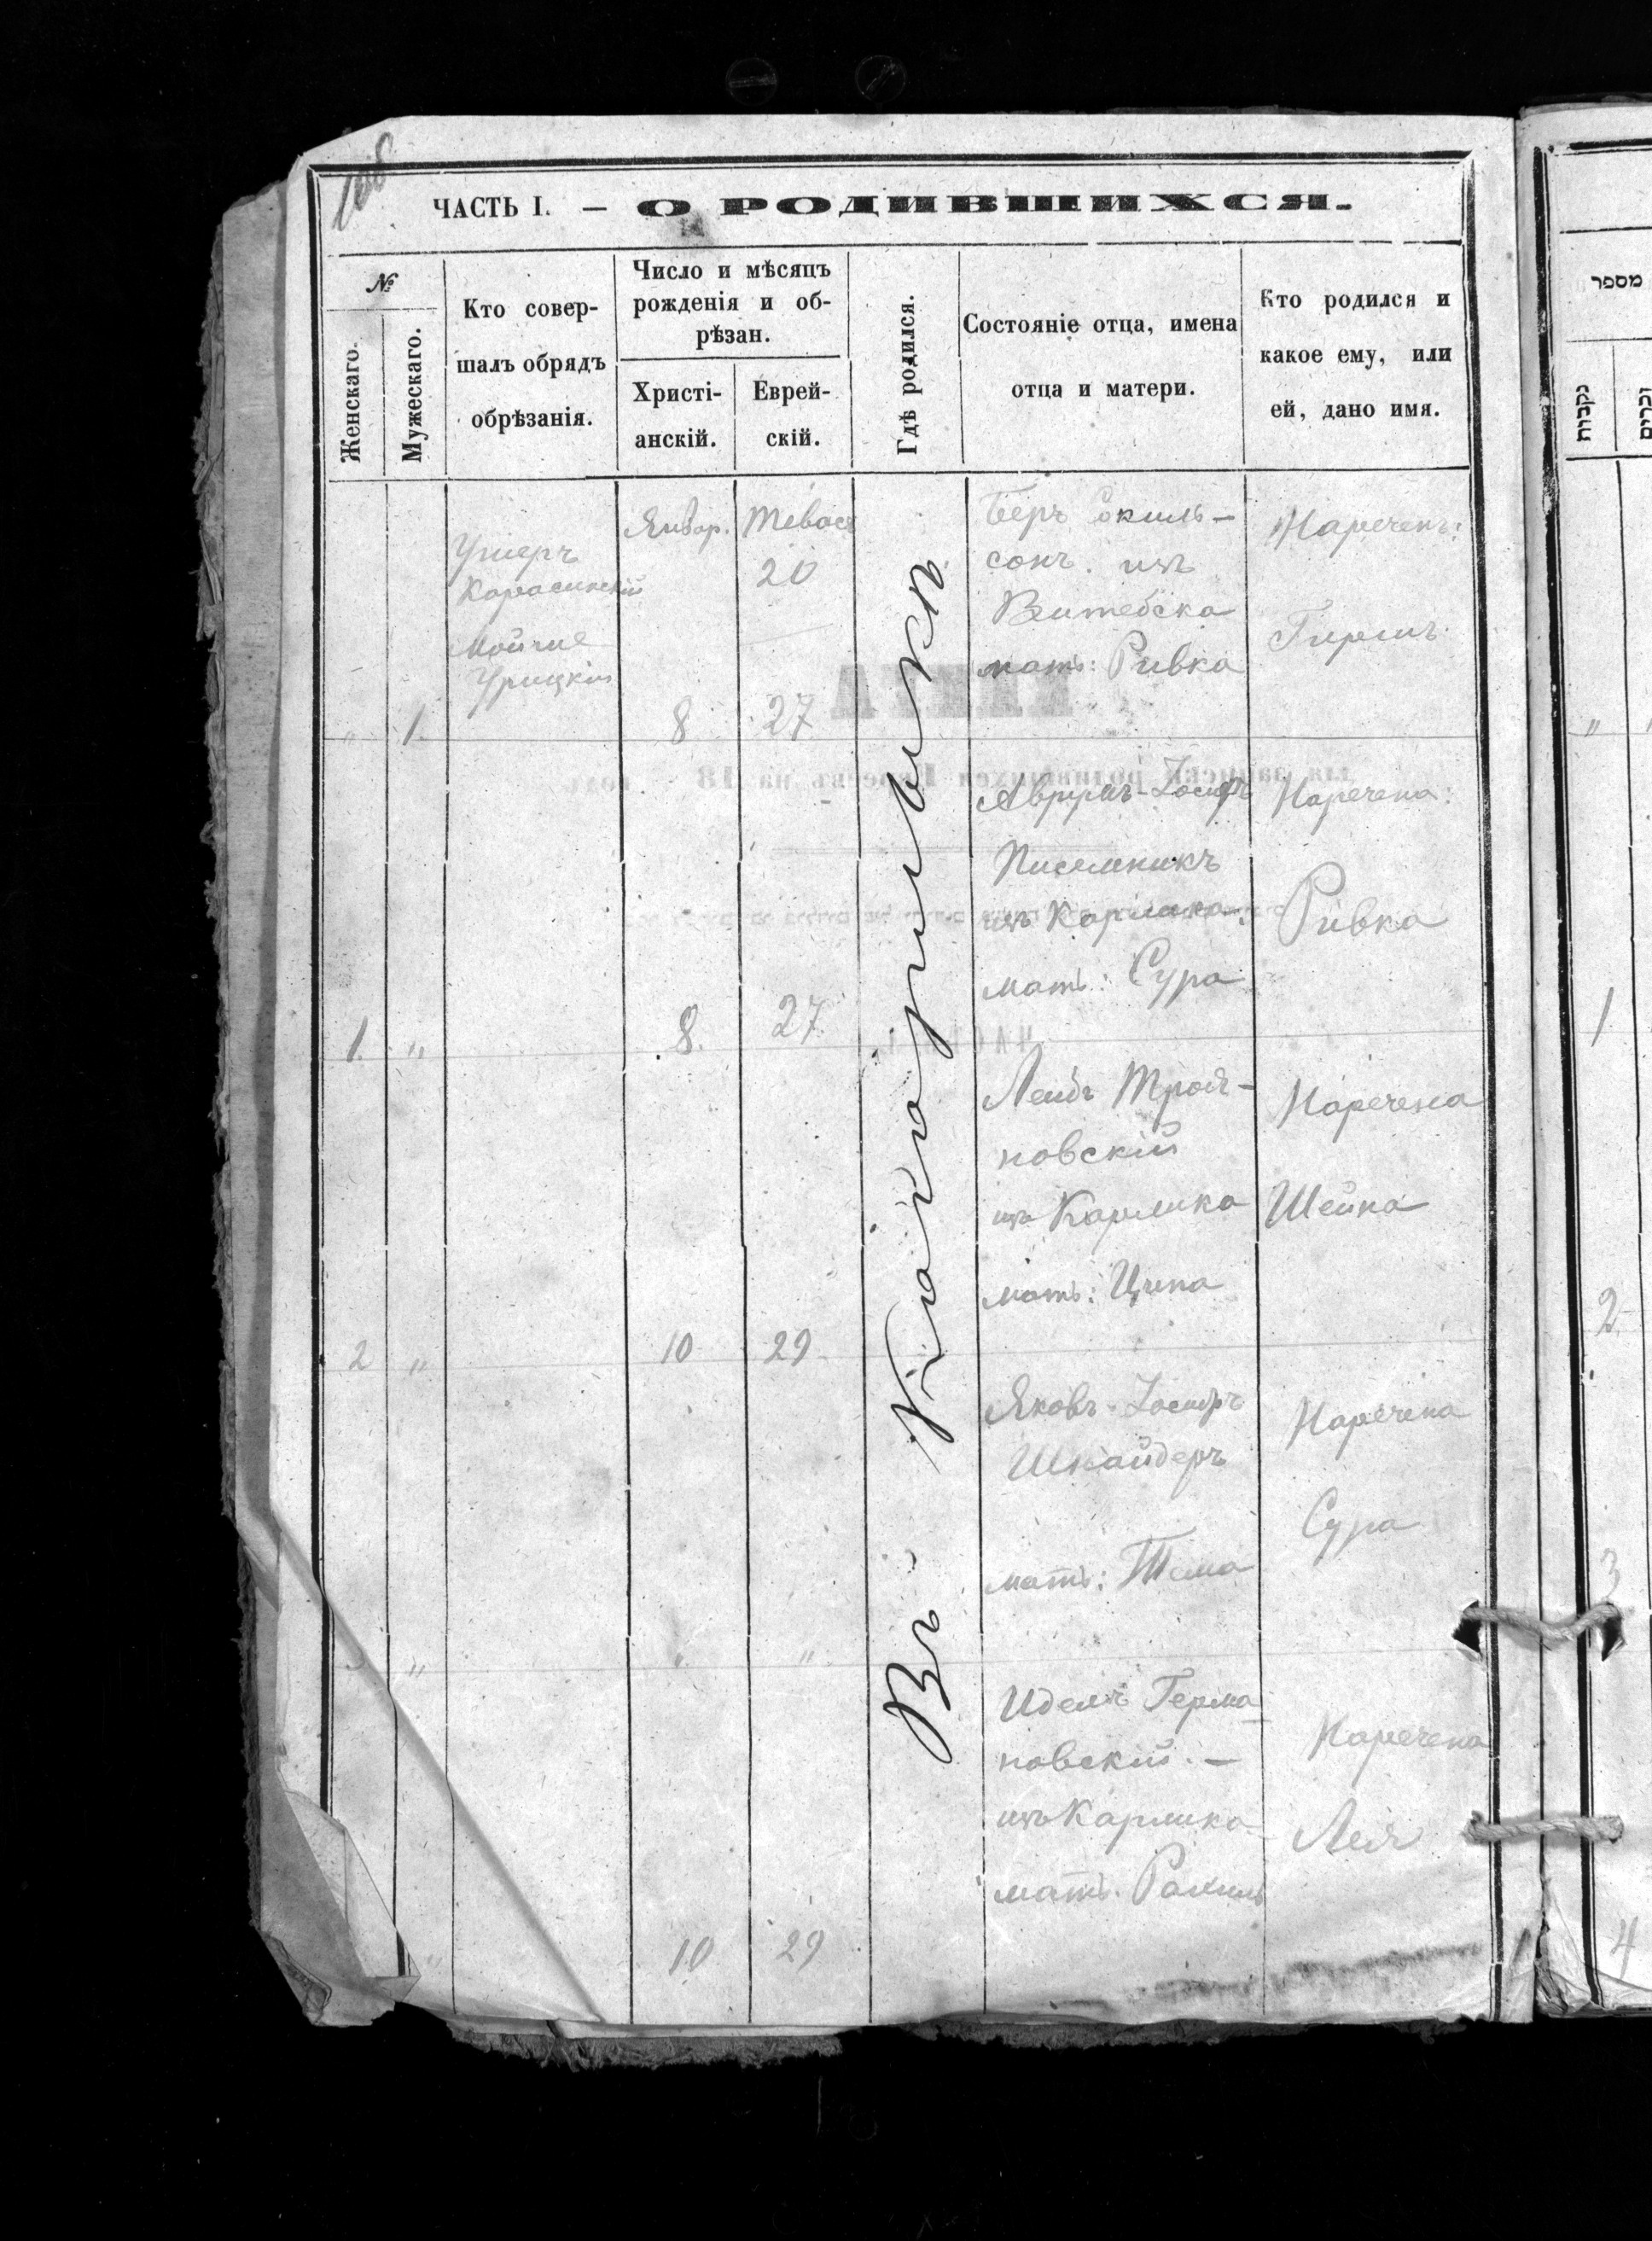 108
ЧАСТЬ I. — О РОДИВШИХСЯ.
№
Женскаго.
Мужескаго.
Кто совер-
шалъ обрядъ
обрѣзанія.
Число и мѣсяцъ
рожденія и об-
рѣзан.
Христі-
анскій.
Еврей-
скій.
Гдѣ родился.
Состояніе отца, имена
отца и матери.
Кто родился и
какое ему, или
ей, дано имя.
Ушеръ
Карасинскій
Мойше
Урицкій
Январ.
Тевасъ
20
Беръ
сонъ. изъ
Витебска
мать: Ривка
Нареченъ:
Гиршъ.
"
1.
8
27
Въ
Аврумъ-Іосифъ
Письменикъ
изъ Карлика:
мать: Сура
Наречена:
Ривка
1.
"
8.
27
Лейбъ Троя-
новскій
изъ Карлика
мать: Ципа
Наречена
Шейна
2
"
10
29
Яковъ-Іосифъ
Шнайдеръ
мать: Тема
Наречена
Сура
"
"
"
Идель Герма
новскій. —
изъ Карлика
мать. Рахиль
Наречена
Лея
"
10
29
מספר
נקבות
זכרים
"
1
2
3
4